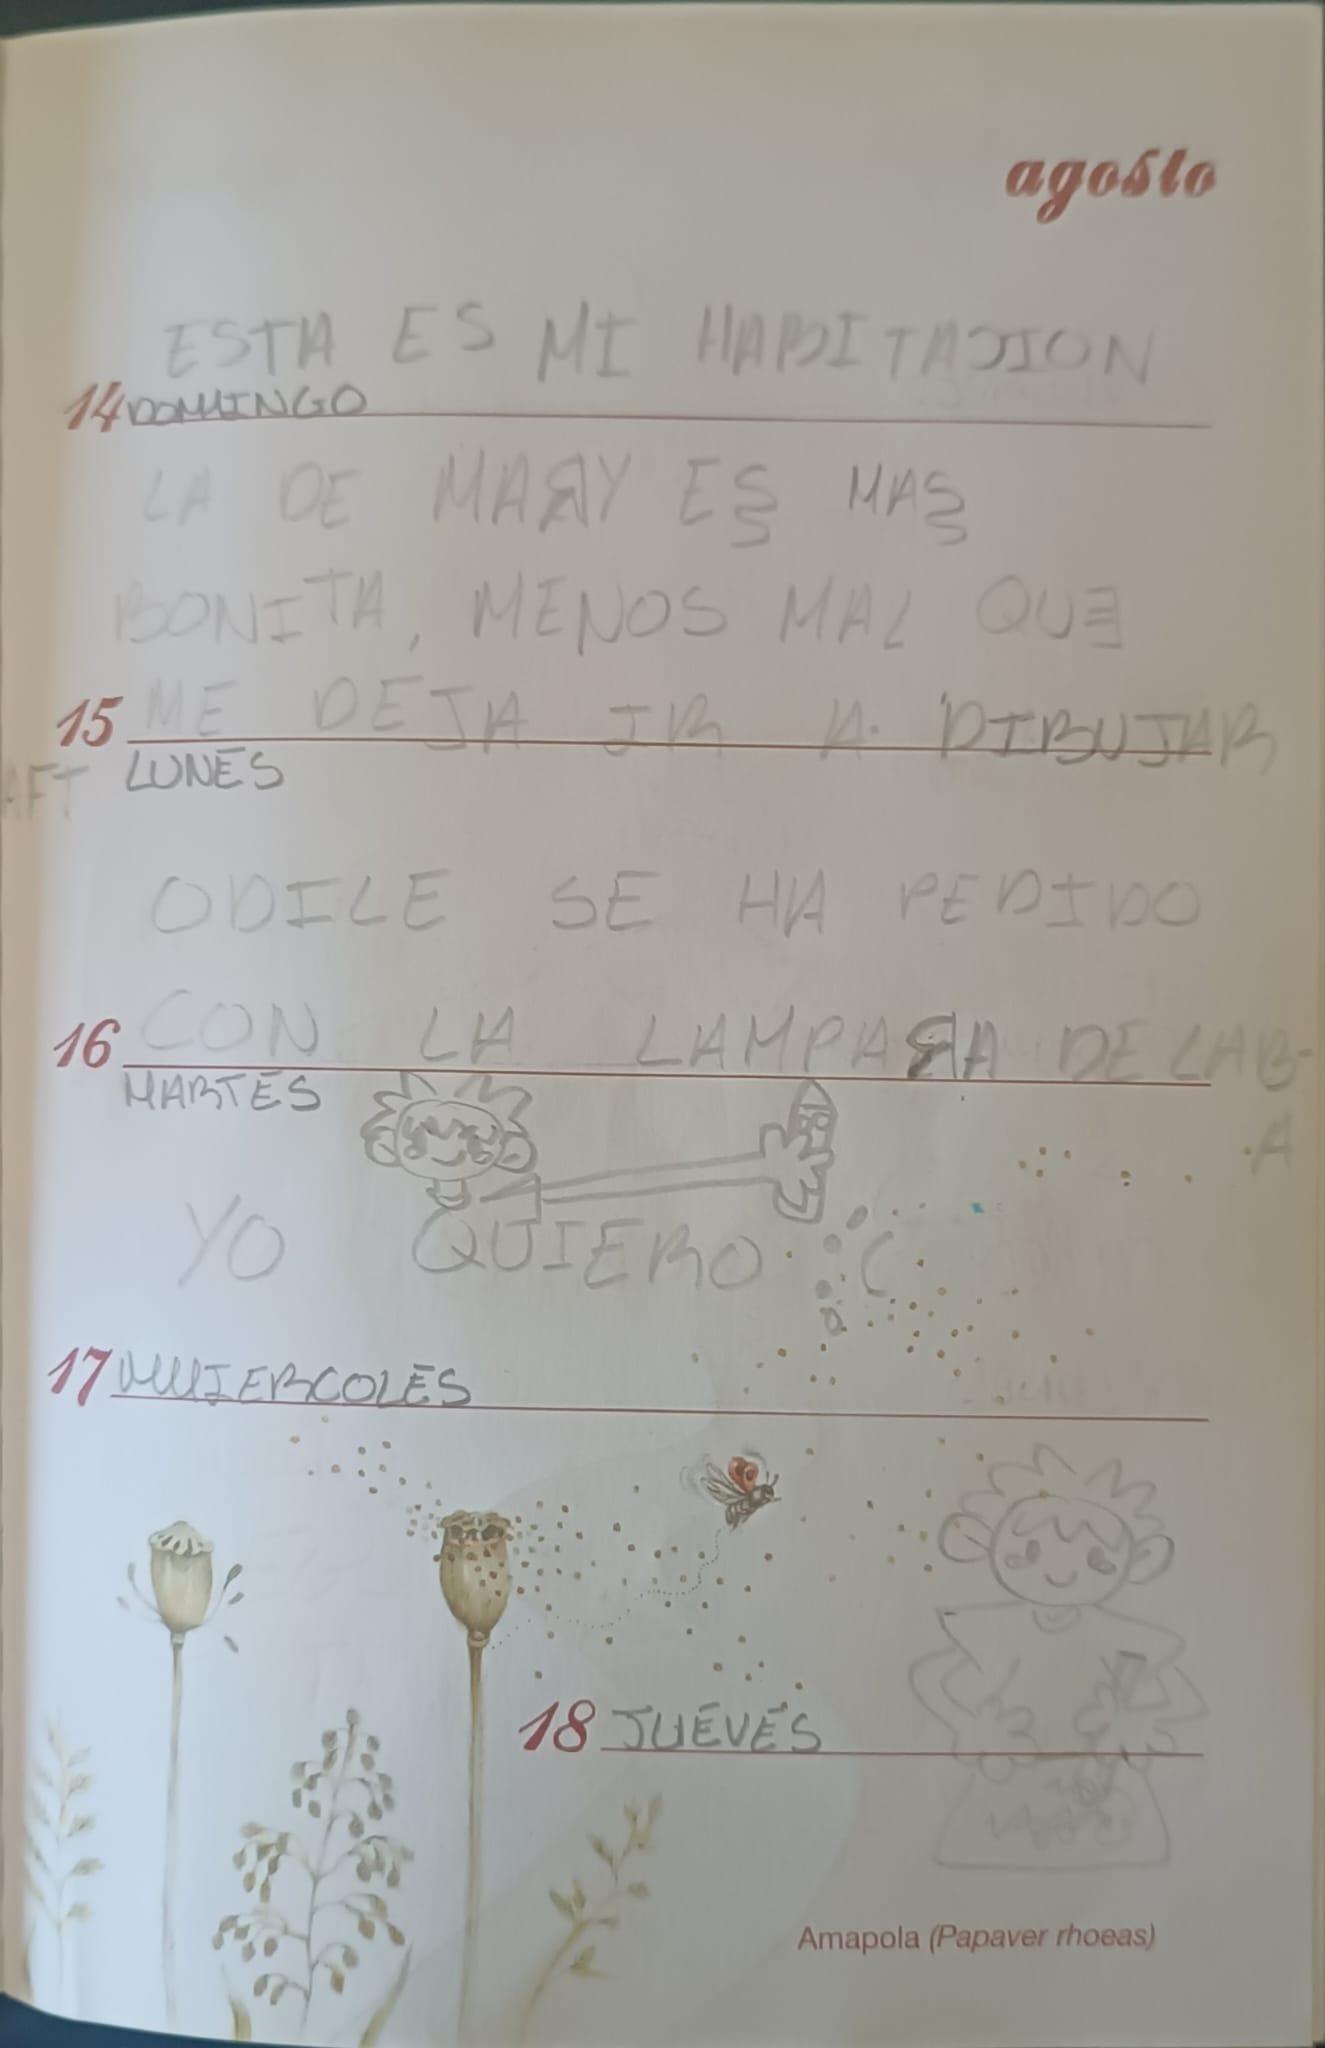 agosto
ESTA ES MI HABITAJION
14 DOMINGO
LA DE MARY ES MAS
BONITA, MENOS MAL QUE
15 ME DEJA IR A DIBUJAR
LUNES
AFT
ODILE SE HA PEDIDO
16 CON LA LAMPARA DE LAB-
A
MARTES
YO QUIERO :(
17 MIERCOLES
18 JUEVES
Amapola (Papaver rhoeas)